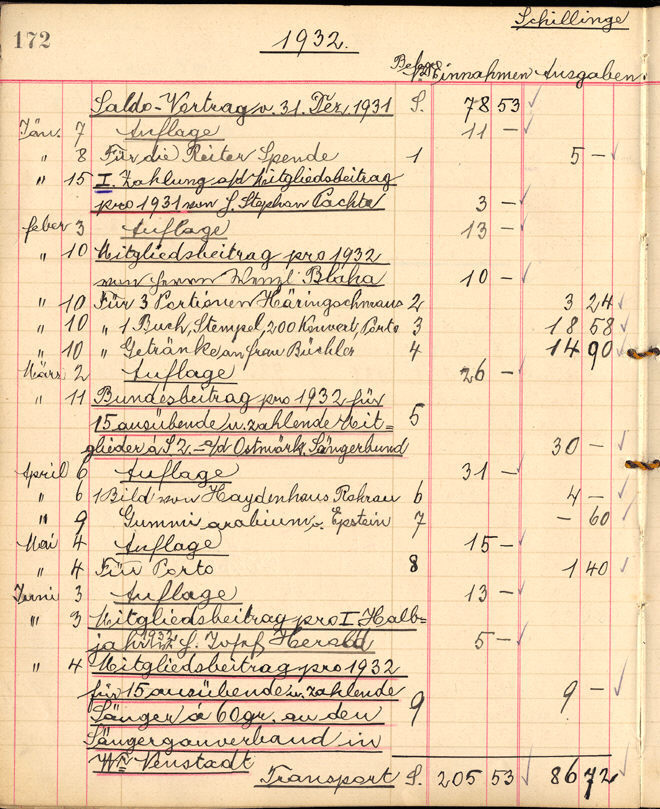 Schillinge
172
1932.
Beleg Nr. Einnahmen Ausgaben.
Saldo-Vortrag v. 31. Dez. 1931 S. 78 53
Jän. 7 Auflage 11 –
" 8 Für die Reiter Spende 1 5 –
" 15 I. Zahlung a/d Mitgliedsbeitrag
pro 1931 von H. Stephan Pachta 3 –
feber 3 Auflage 13 –
" 10 Mitgliedsbeitrag pro 1932
von Herrn Wenzl Blaha 10 –
" 10 Für 3 Portionen Häringschmaus 2 3 24
" 10 " 1 Buch, Stempel, 200 Konvert, Porto 3 18 58
" 10 " Getränke an frau Büchler 4 14 90
März 2 Auflage 26 –
" 11 Bundesbeitrag pro 1932 für
15 ausübende u. zahlende Mit=
glieder á S 2.– a/d Ostmärk. Sängerbund 5 30 –
April 6 Auflage 31 –
" 6 1 Bild von Haydenhaus Rohrau 6 4 –
" 9 Gummi arabium v. Epstein 7 – 60
Mai 4 Auflage 15 –
" 4 Für Porto 8 1 40
Juni 3 Auflage 13 –
" 3 Mitgliedsbeitrag pro I Halb=
jahr 1932 H. Josef Herold 5 –
" 4 Mitgliedsbeitrag pro 1932
für 15 ausübende u. zahlende 9 –
Sänger á 60 gr. an den 9
Sängergauverband in
Wr. Neustadt
Transport S. 205 53 86 72